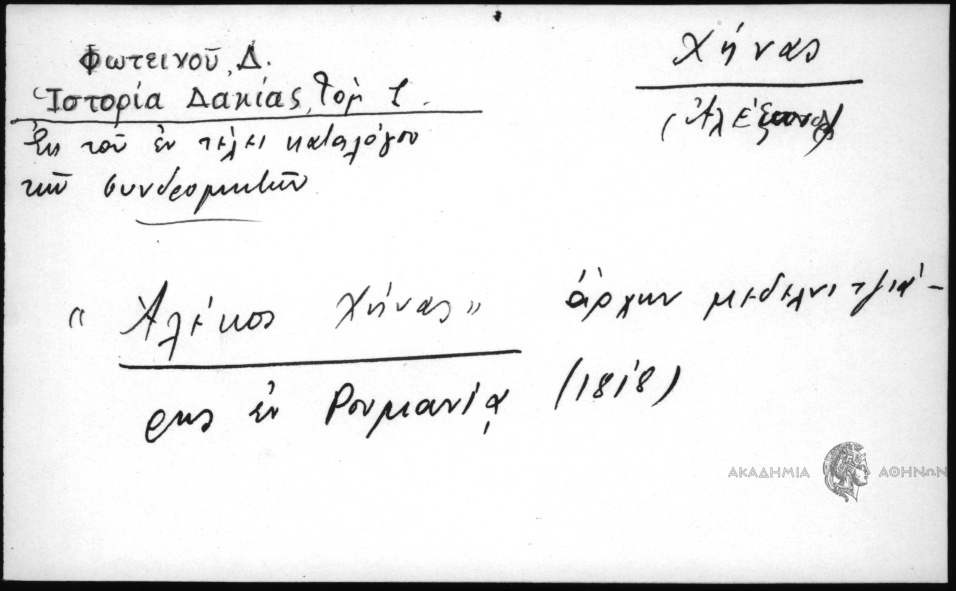 Φωτεινοῦ, Δ.
Ἱστορία Δακίας, τομ
Ἐκ τοῦ ἐν τέλει καταλόγου
τῶν συνδρομητῶν
Χήνας
(Ἀλέξανδρ)
"Ἀλέκος Χήνας" ἄρχων μεδελνιτζιά-
ρης ἐν Ρουμανίᾳ (1818)
ΑΚΑΔΗΜΙΑ ΑΘΗΝΩΝ